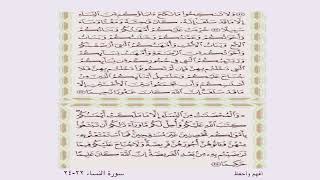 وَلَا تَنكِحُوا۟ مَا نَكَحَ ءَابَآؤُكُم مِّنَ ٱلنِّسَآءِ
إِلَّا مَا قَدْ سَلَفَ إِنَّهُۥ كَانَ فَٰحِشَةً وَمَقْتًا وَسَآءَ
سَبِيلًا ۝٢٢ حُرِّمَتْ عَلَيْكُمْ أُمَّهَٰتُكُمْ وَبَنَاتُكُمْ
وَأَخَوَٰتُكُمْ وَعَمَّٰتُكُمْ وَخَٰلَٰتُكُمْ وَبَنَاتُ
ٱلْأَخِ وَبَنَاتُ ٱلْأُخْتِ وَأُمَّهَٰتُكُمُ ٱلَّٰتِىٓ أَرْضَعْنَكُمْ
وَأَخَوَٰتُكُم مِّنَ ٱلرَّضَٰعَةِ وَأُمَّهَٰتُ نِسَآئِكُمْ
وَرَبَٰٓئِبُكُمُ ٱلَّٰتِى فِى حُجُورِكُم مِّن نِّسَآئِكُمُ
ٱلَّٰتِى دَخَلْتُم بِهِنَّ فَإِن لَّمْ تَكُونُوا۟ دَخَلْتُم بِهِنَّ فَلَا
جُنَاحَ عَلَيْكُمْ وَحَلَٰٓئِلُ أَبْنَآئِكُمُ ٱلَّذِينَ مِنْ
أَصْلَٰبِكُمْ وَأَن تَجْمَعُوا۟ بَيْنَ ٱلْأُخْتَيْنِ
إِلَّا مَا قَدْ سَلَفَ إِنَّ ٱللَّهَ كَانَ غَفُورًا رَّحِيمًا ۝٢٣
وَٱلْمُحْصَنَٰتُ مِنَ ٱلنِّسَآءِ إِلَّا مَا مَلَكَتْ أَيْمَٰنُكُمْ
كِتَٰبَ ٱللَّهِ عَلَيْكُمْ وَأُحِلَّ لَكُم مَّا وَرَآءَ ذَٰلِكُمْ أَن تَبْتَغُوا۟
بِأَمْوَٰلِكُم مُّحْصِنِينَ غَيْرَ مُسَٰفِحِينَ فَمَا ٱسْتَمْتَعْتُم بِهِۦ
مِنْهُنَّ فَـَٔاتُوهُنَّ أُجُورَهُنَّ فَرِيضَةً وَلَا جُنَاحَ عَلَيْكُمْ فِيمَا
تَرَٰضَيْتُم بِهِۦ مِنۢ بَعْدِ ٱلْفَرِيضَةِ إِنَّ ٱللَّهَ كَانَ عَلِيمًا
حَكِيمًا
افهم واحفظ
سورة النساء ٢٢-٢٤